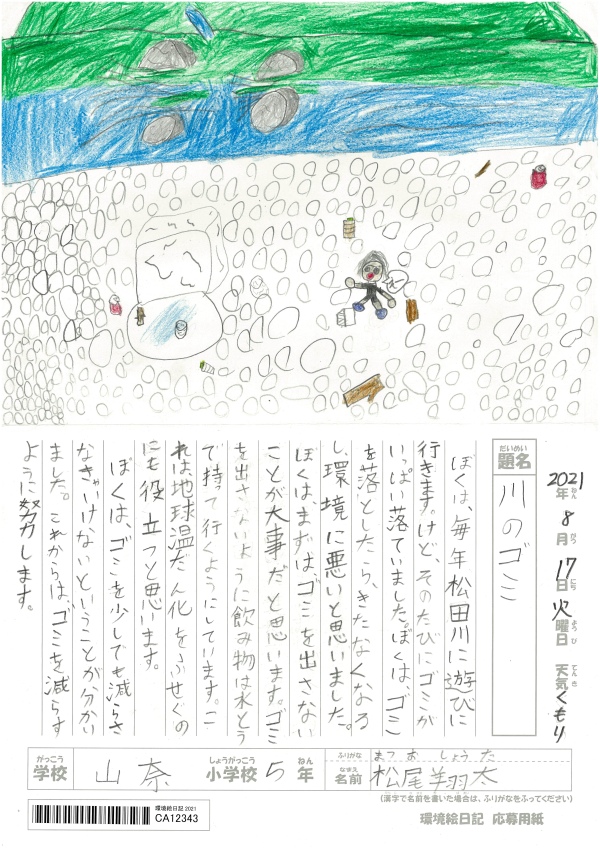 2021年ねん8月がつ17日にち火曜日ようび 天気てんきくもり
だいめい
題名
川のゴミ
ぼくは、毎年松田川に遊びに
行きます。けど、そのたびにゴミが
いっぱい落ていました。ぼくは、ゴミ
を落としたら、きたなくなる
し、環境に悪いと思いました。
ぼくは、まずはゴミを出さない
ことが大事だと思います。ゴミ
を出さないように飲み物は水とう
で持って行くようにしています。こ
れは地球温だん化をふせぐの
にも役立つと思います。
ぼくは、ゴミを少しでも減らさ
なきゃいけないということが分かい
ました。これからは、ゴミを減らす
ように努力します。
がっこう
学校
山奈
しょうがっこう
小学校
5
ねん
年
ふりがな
まつ お しょう た
なまえ
名前
松尾翔太
(漢字で名前を書いた場合は、ふりがなをふってください)
環境絵日記 2021
CA12343
環境絵日記 応募用紙